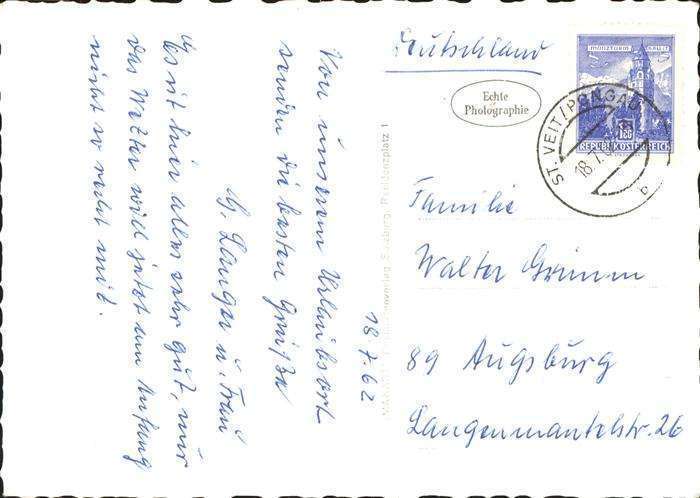 18.7.62
Von unserem Urlaubsort
senden die besten Grüße
G. Langer u. Frau
Es ist hier alles sehr gut, nur
das Wetter will jetzt am Anfang
nicht so recht mit.
Deutschland
Echte
Photographie
MÜNZTURM HALL I. T.
1.80
REPUBLIK ÖSTERREICH
ST. VEIT/PONGAU
18.7.
Salzburg, Residenzplatz 1
Familie
Walter Grimm
89 Augsburg
Langenmantelstr. 26